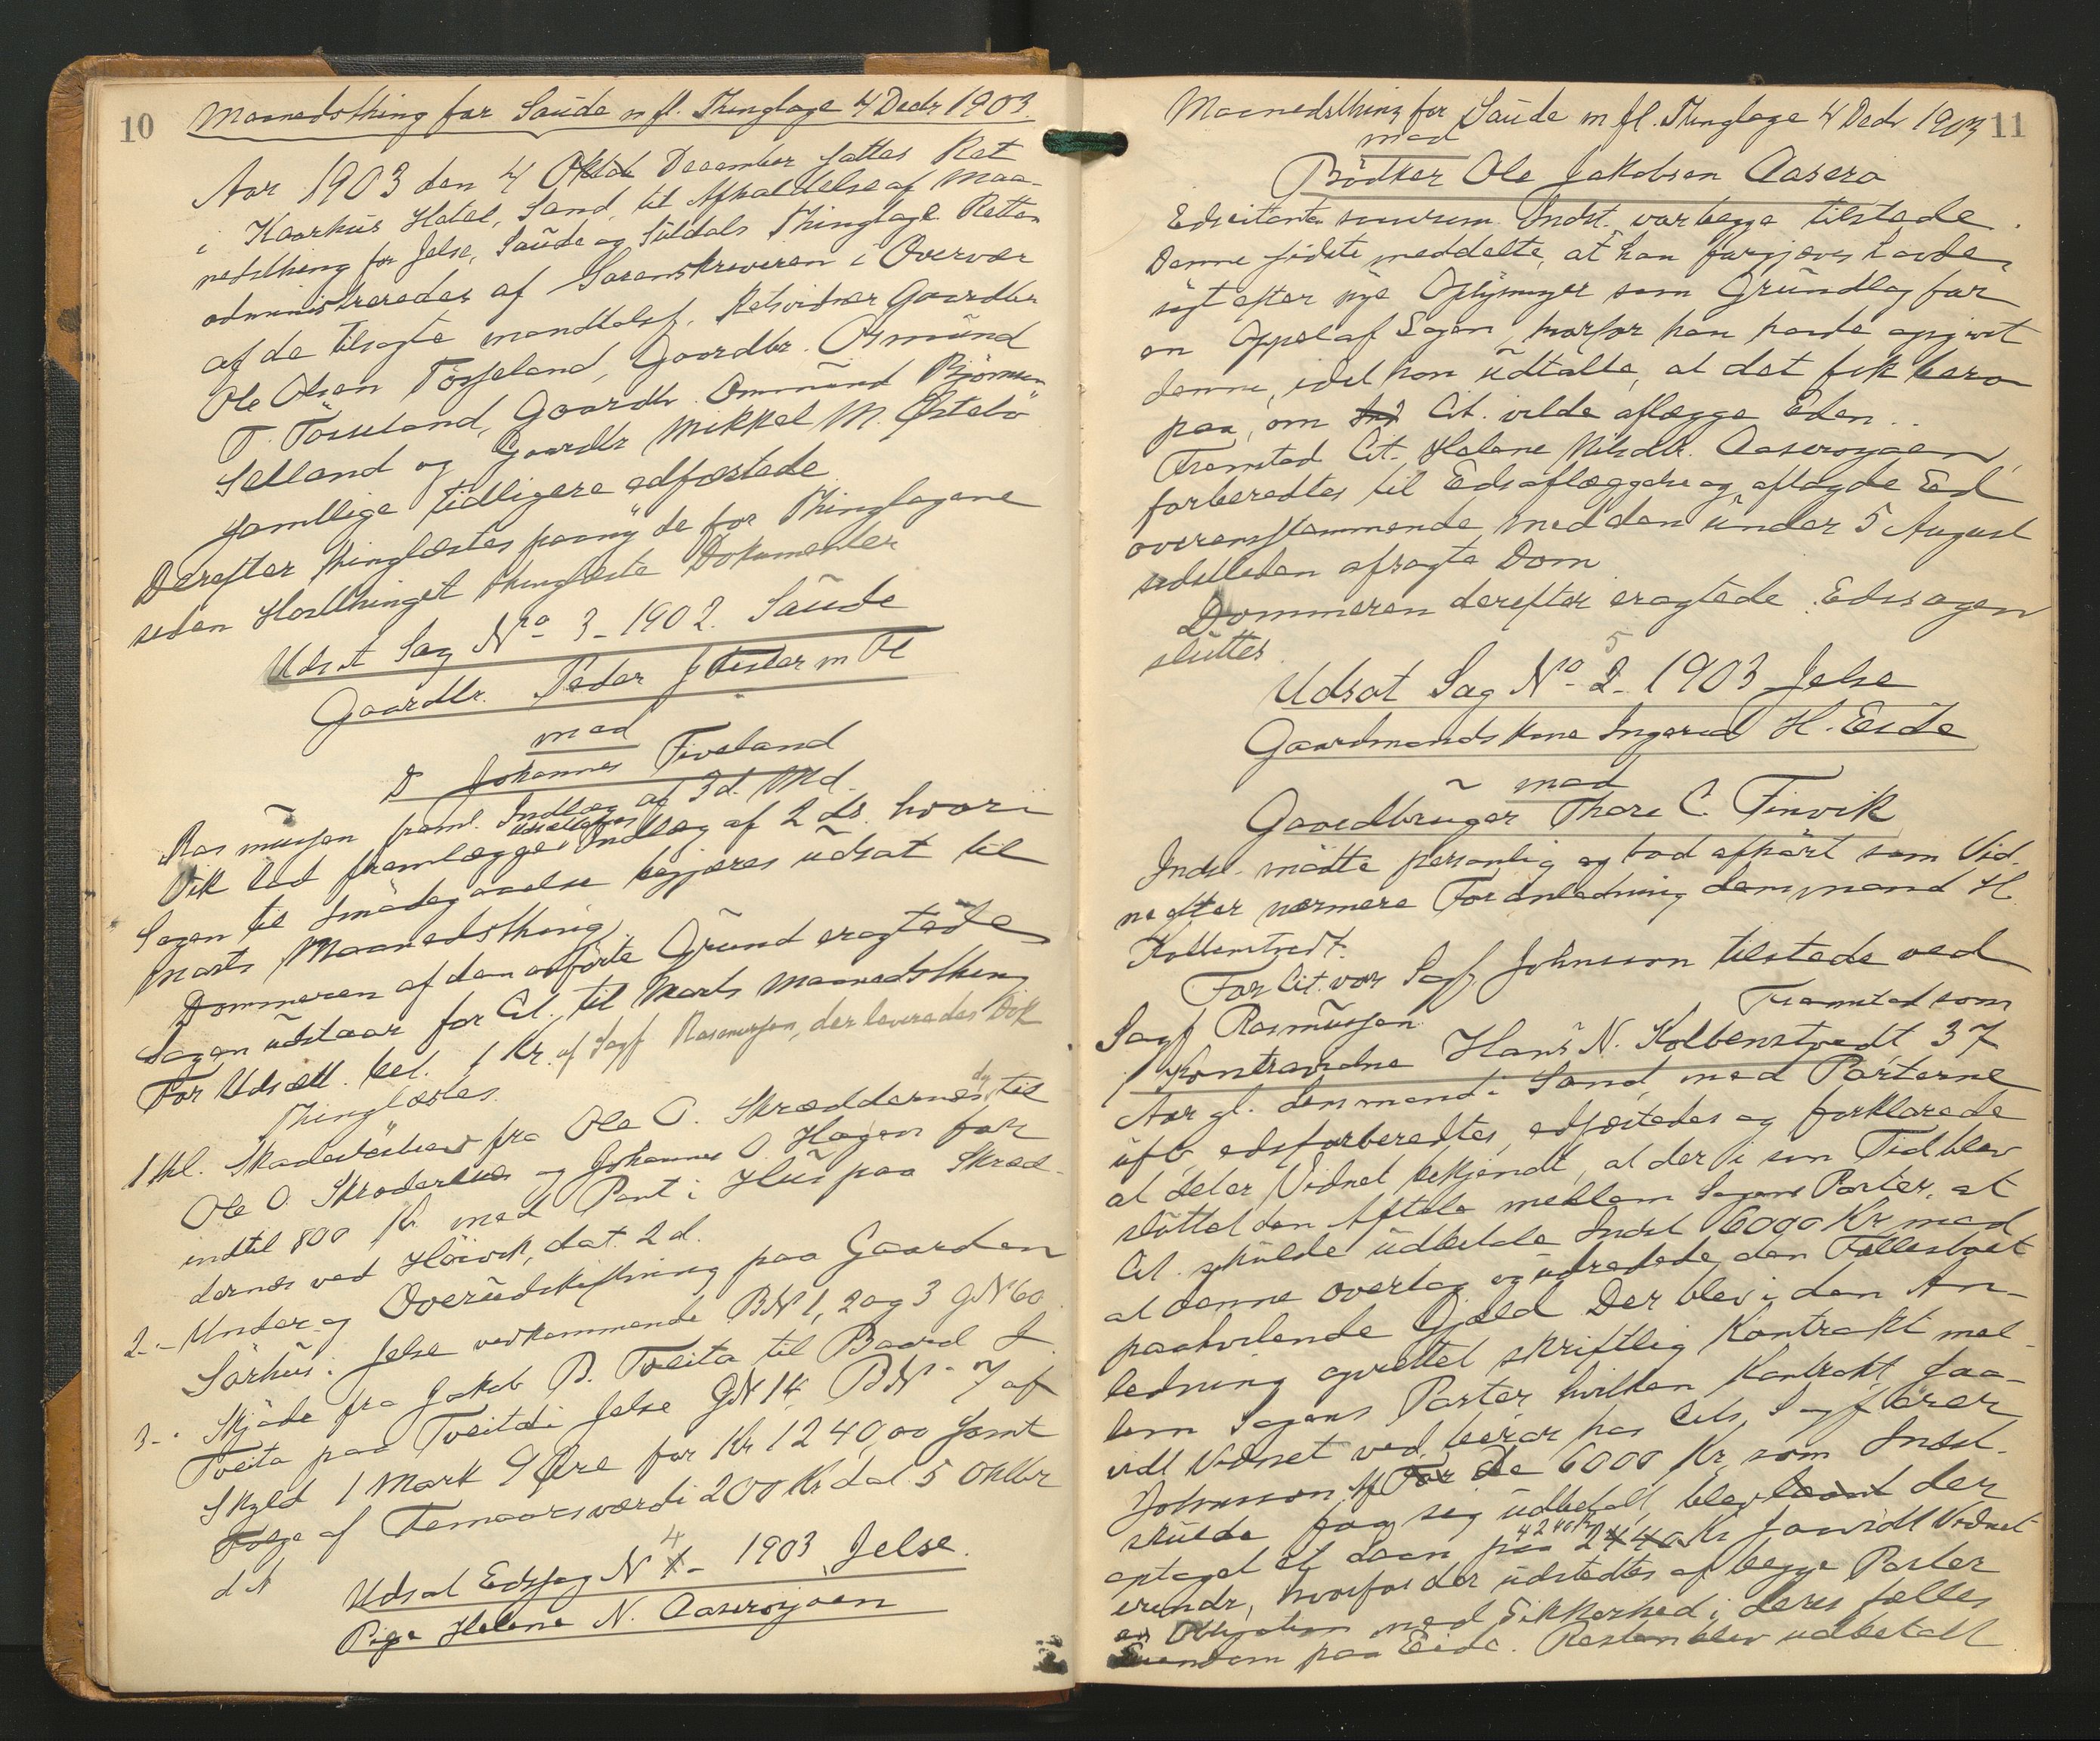 10
Maanedsthing for Saude m fl. Thinglage 4 Decbr 1903.
Aar 1903 den 4 Oktob December sattes Ret
i Kaarhus Hotel, Sand, til Afholdelse af Maa-
nedsthing for Jelse, Saude og Suldals Thinglage. Retten
administreredes af Sorenskriveren i Overvær
af de tilsagte Retsvidner Gaardbr
Ole Olsen Tösseland, Gaardbr. Osmund
T. Tösseland, Gaardbr. Ommund Björnsen
Selland og Gaardbr Mikkel M. Østebö
samtlige tidligere edfæstede
Derefter thinglæstes paany de for Thinglagene
siden Hostthinget thinglæste Dokumenter
Udst Sag No 3 - 1902. Saude
Gaardbr. Peder m Fl
mod
D Johannes Fiveland
Rasmussen freml. Indlæg af 3d. Md.
Vik lod fremlægge Udsættelses Indlæg af 2 ds. hvori
Sagen til Imödegaaelse begjæres udsat til
Marts Maanedsthing.
Dommeren af den anförte Grund eragtede
Sagen udstaar for Cit. til Marts Maanedsthing
For Udsætt. bet. 1 Kr. af Sagf Rasmussen, der leveredes Dok
Thinglæstes.
1 Kl. Skadeslösbrev fra Ole O. Skræddernes til
Ole O. Skrædernes og Johannes O. Hagen for
indtil 800 Kr. med Pant i Hus paa Skræd-
dernes ved Höivik, dat. 2 d.
2 - Under og Overudskiftning paa Gaarden
Sörhus i Jelse vedkommende BN 1, 2 og 3 GN 60
3 - Skjöde fra Jakob B. Tveita til Baard J.
Tveita paa Tveitdi Jelse GN 14 BN 7 af
Skyld 1 Mark 9 Øre for Kr 1240,00 samt
Folge af Femaarsværdi 200 Kr dat. 5 Oktbr
d A
Udsat Edssag N 4 - 1903 Jelse.
Pige Helene N. Aaseröyaen
11
Maanedsthing for Saude m fl. Thinglage 4 Decbr 1903
mod
Bödker Ole Jakobsen Aaserö
Indst. var begge tilstede.
Denne sidste meddelte, at han forgjæves havde
sögt efter nye Oplysninger som Grundlag for
en Appel af Sagen, hvorfor han havde opgivet
denne, idet han udtalte, at det fik bero
paa, om Cit. vilde aflægge Eden.
Fremstod Cit. Helene Nilsdtr. Aaseröyaen,
forberedtes til Edsaflæggelse og aflagde Ed
overensstemmende med den under 5 August
sidstleden afsagte Dom
Dommeren derefter eragtede: Edssagen
sluttes
Udsat Sag No 5 - 1903 Jelse
Gaardmandskone Ingerid H. Eide
mod
Gaardbruger Thore C. Finvik
Indst. mödte personlig og bad afhört som Vid-
ne efter nærmere Foranledning Lensmand H.
Kolbenstvedt.
For Cit. var Sagf. Johnsson tilstede ved
Sagf Rasmussen. Fremstod som
1 Kontravidne Hans N. Kolbenstvedt 37
Aar gl. Lensmand i Sand, med Parterne
ubs. edsforberedtes, edfæstedes og forklarede
at det er Vidnet bekjendt, at der i sin Tid blev
sluttet den Aftale mellem Sagens Parter, at
Cit. skulde udbetale Indst 6000 Kr mod
at denne overtog og udredede den Fællesboet
paahvilende Gjæld Der blev i den An-
ledning oprettet skriftlig Kontrakt mel-
lem Sagens Parter hvilken Kontrakt, saa-
vidt Vidnet ved, beror hos Cits, Sagförer
Johnsson. Af For De 6000 Kr, som Indst.
skulde faa sig udbetalt, blev laant der
optaget et Laan paa 4240 Kr 2440 Kr saavidt Vidnet
erindr, hvorfor der udstedtes af begge Parter
en Obligation med Sikkerhed i deres fælles
Eiendom paa Eide. Resten blev udbetalt